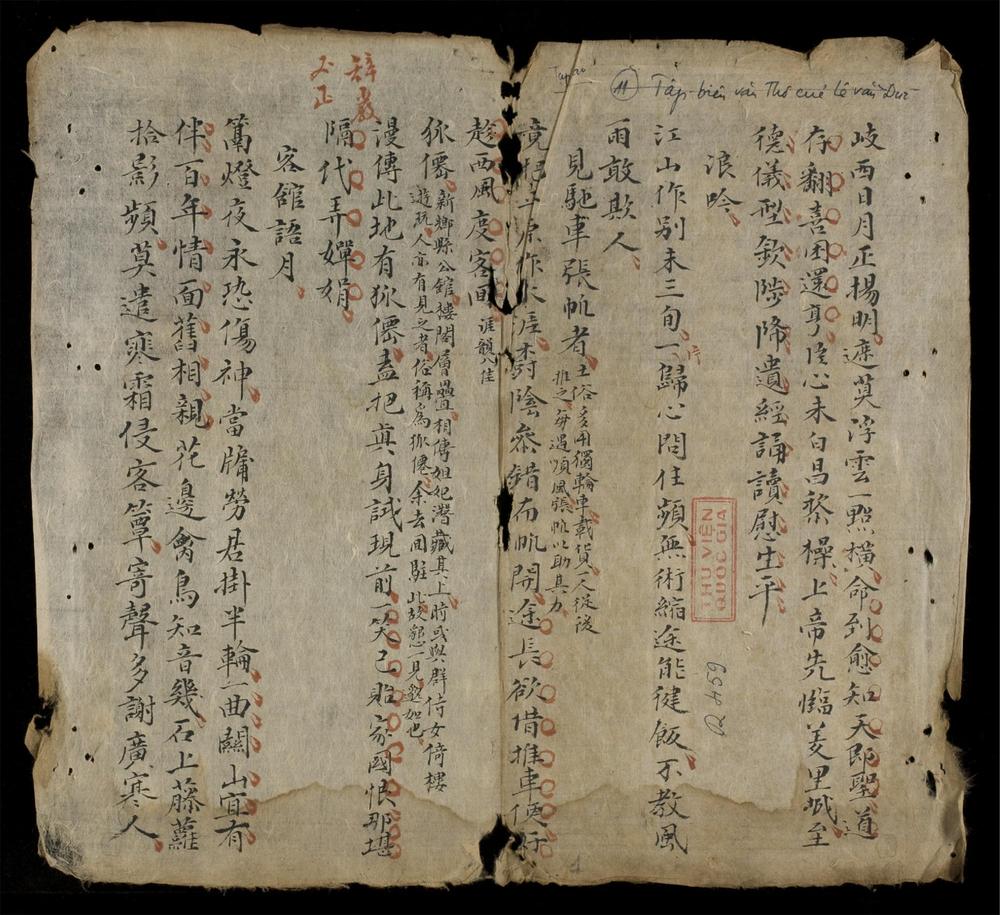 Tập biên văn Thơ của Lê văn Đức
岐西日月正揚明遮莫浮雲一點橫命到愈知天即聖道
存翻喜困還亨臣心未白昌黎操上帝先臨羑里城至
德儀型欽陟降遺經誦讀慰生平
浪吟
江山作别未三旬一片歸心問住頻無術縮途能健飯不教風
雨敢欺人
見馳車張帆者
土俗多用獨輪車載貨一人從後
推之每遇順風張帆以助其力
竟把平原作水涯樹陰參錯布帆開途長欲借推車便好
趁西風度客回
涯韻八佳
狐僊
新鄉縣公舘樓閣層疊相傳妲妃潛藏其上時或與群侍女倚樓
遊玩人亦有見之者俗稱為狐僊余去回駐此故懇一見邈如也
漫傳此地有狐僊盍把真身試現前一笑已貽家國恨那堪
隔代弄嬋娟
辭嚴
義正
客舘語月
篝燈夜永恐傷神當牖勞君掛半輪一曲關山宜有
伴百年情面舊相親花邊禽鳥知音幾石上藤蘿
拾影頻莫遣寒霜侵客簟寄聲多謝廣寒人
THƯ VIỆN
QUỐC GIA
R 459